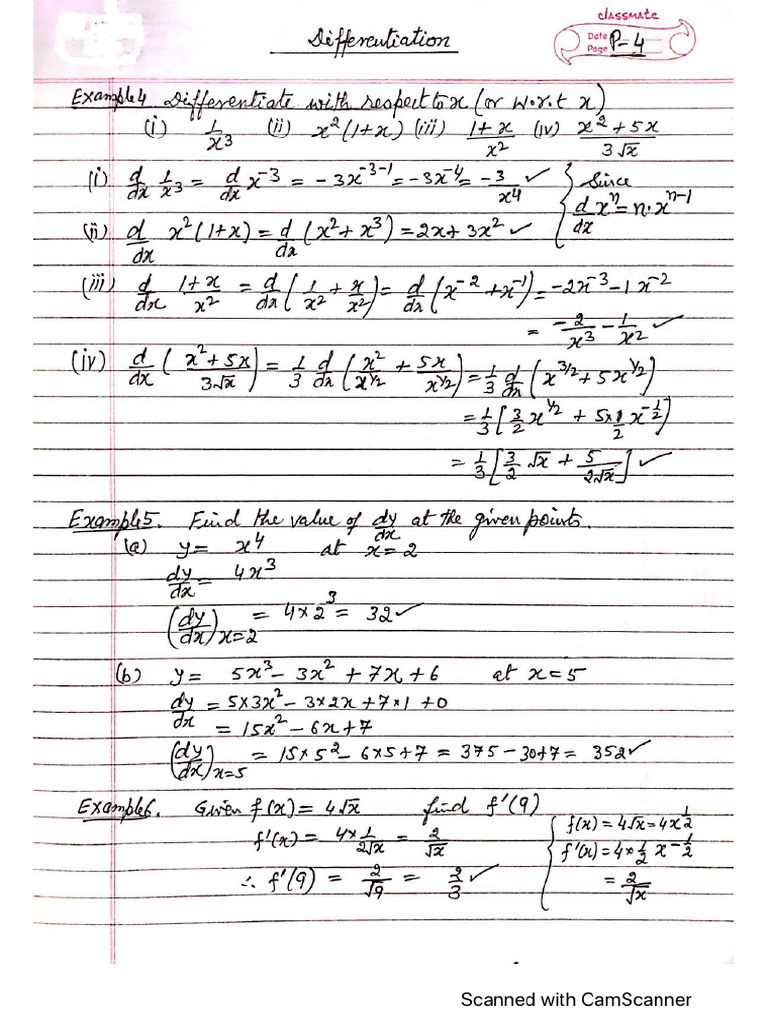 classmate
Date
Page P-4
Differentiation
Example 4 Differentiate with respect to x (or w.r.t x)
(i) 1/x³ (ii) x²(1+x) (iii) (1+x)/x² (iv) (x²+5x)/3√x
(i) d/dx 1/x³ = d/dx x⁻³ = -3x⁻³⁻¹ = -3x⁻⁴ = -3/x⁴ ✓ } Since
d/dx xⁿ = n·xⁿ⁻¹
(ii) d/dx x²(1+x) = d/dx (x²+x³) = 2x+3x² ✓
(iii) d/dx (1+x)/x² = d/dx (1/x² + x/x²) = d/dx (x⁻² + x⁻¹) = -2x⁻³ - 1x⁻²
= -2/x³ - 1/x² ✓
(iv) d/dx ((x²+5x)/3√x) = 1/3 d/dx (x²/x^1/2 + 5x/x^1/2) = 1/3 d/dx (x^3/2 + 5x^1/2)
= 1/3 [3/2 x^1/2 + 5×1/2 x^-1/2]
= 1/3 [3/2 √x + 5/2√x] ✓
Example 5. Find the value of dy/dx at the given points.
(a) y = x⁴ at x=2
dy/dx = 4x³
(dy/dx)x=2 = 4×2³ = 32 ✓
(b) y = 5x³ - 3x² + 7x + 6 at x=5
dy/dx = 5×3x² - 3×2x + 7×1 + 0
= 15x² - 6x + 7
(dy/dx)x=5 = 15×5² - 6×5+7 = 375 - 30+7 = 352 ✓
Example 6. Given f(x) = 4√x find f'(9)
f'(x) = 4×1/2√x = 2/√x
∴ f'(9) = 2/√9 = 2/3 ✓
{ f(x) = 4√x = 4x^1/2
f'(x) = 4×1/2 x^-1/2
= 2/√x
Scanned with CamScanner